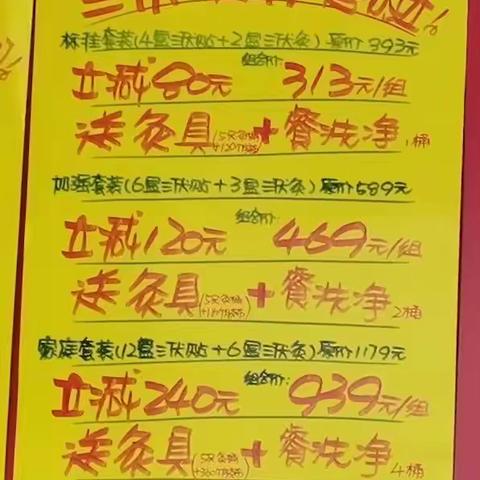 标准套装(4盒三伏贴+2盒三伏灸)原价393元
立减80元 组合价: 313元/组
送灸具 + 餐洗净 1桶
加强套装(6盒三伏贴+3盒三伏灸)原价589元
立减120元 组合价: 469元/组
送灸具 + 餐洗净 2桶
家庭套装(12盒三伏贴+6盒三伏灸)原价1179元
立减240元 组合价: 939元/组
送灸具 + 餐洗净 4桶